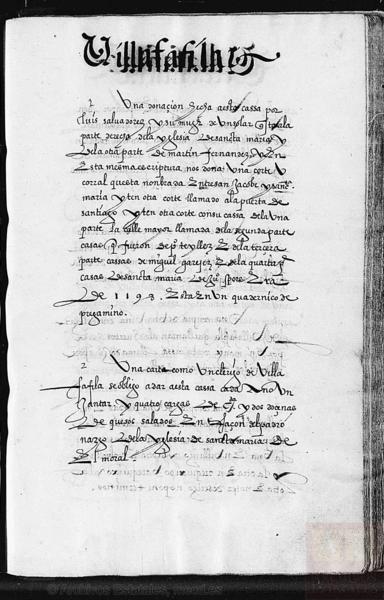 Villafafila
2 Una donaçion hecha a esta cassa por
luis salvadorez y su muger de un solar
parte derecha dela yglesia de sancta maria y
dela otra parte de martin fernandez y en
esta mesma escriptura nos dona una corte y
corral questa nombrada entre san Jacobe y
maria y ten otra corte llamado a la puerta de
santiago y ten otra corte con su cassa dela una
parte la calle mayor llamada dela segunda parte
casas q fueron de po tellez e dela terçera
parte cassas de miguel garçez e dela quarta pe
casas de sancta maria de
de 1198. esta en un quadernico de
pergamino.
2 Una carta como un clerigo de Villa
fafila se obligo a dar a esta cassa cada uno un
Jantar y quatro cargas de y dos doçanas
de quesos salados en raçon del padro
nazgo dela yglesia de sancta maria de
el moral.